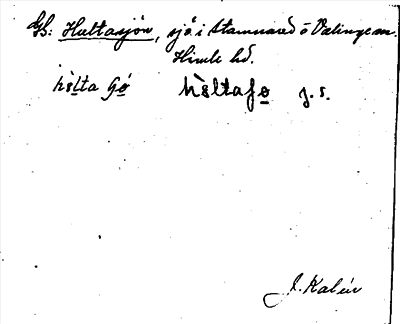 GB: Hultasjön, sjö i Stamnared ö Valinge sn.
Himle hd.
hùlta ʃø hùltaʃø j. s.
J. Kalén